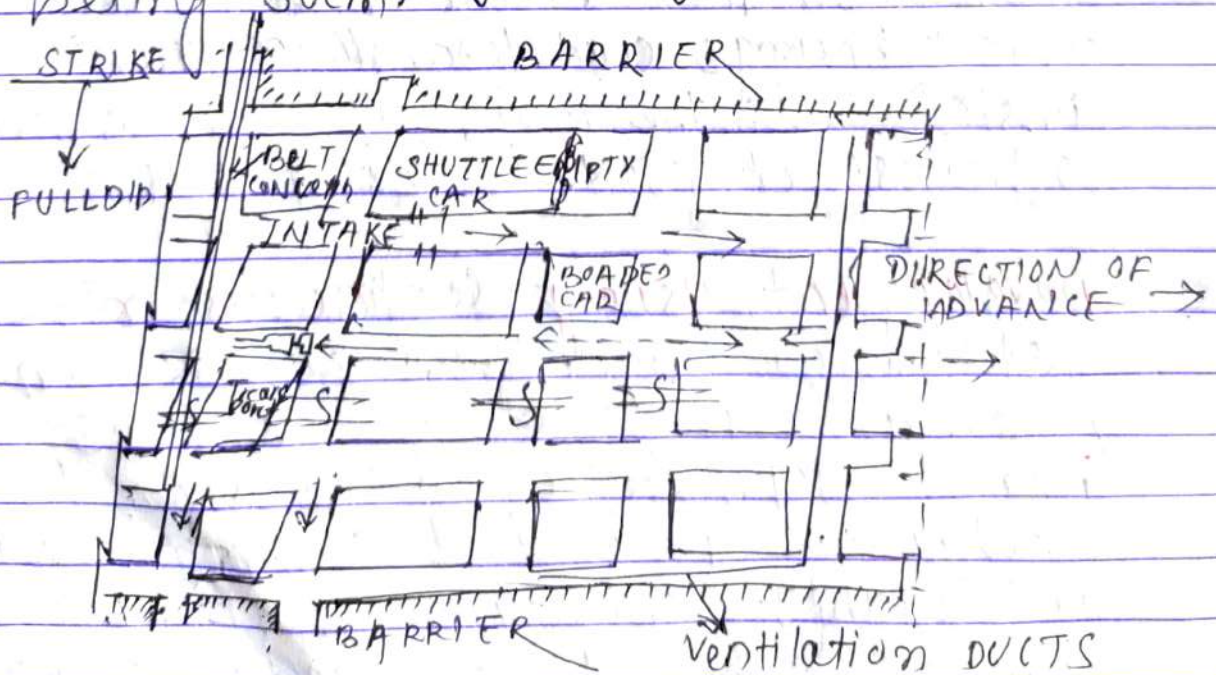 STRIKE
BARRIER
FULLDID
BELT
SHUTTLE EMPTY
CAR
INTAKE
BOADED
CAR
DIRECTION OF
ADVANCE
BARRIER
Ventilation DUCTS